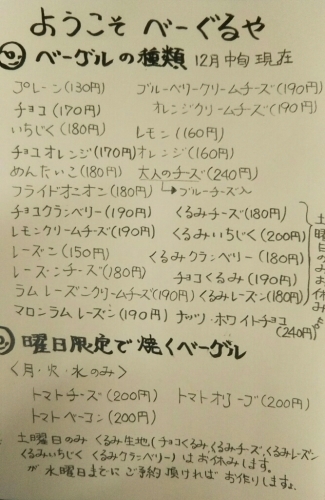 ようこそ べーぐるや
ベーグルの種類 12月中旬現在
プレーン(130円) ブルーベリークリームチーズ(190円)
チョコ(170円) オレンジクリームチーズ(190円)
いちじく(180円) レモン(160円)
チョコオレンジ(170円) オレンジ(160円)
めんたいこ(180円) 大人のチーズ(240円)
フライドオニオン(180円) →ブルーチーズ入
チョコクランベリー(190円) くるみチーズ(180円)
レモンクリームチーズ(190円) くるみいちじく(200円)
レーズン(150円) くるみクランベリー(180円)
レーズンチーズ(180円) チョコくるみ(190円)
ラムレーズンクリームチーズ(190円) くるみレーズン(180円)
マロンラムレーズン(190円) ナッツ・ホワイトチョコ
(240円)
土曜日のみお休み
曜日限定で焼くベーグル
〈月・火・水のみ〉
トマトチーズ(200円) トマトオリーブ(200円)
トマトベーコン(200円)
土曜日のみ くるみ生地(チョコくるみ、くるみチーズ、くるみレーズン
くるみいちじく くるみクランベリー)はお休みします。
が 水曜日までにご予約頂ければお作りしますよ。